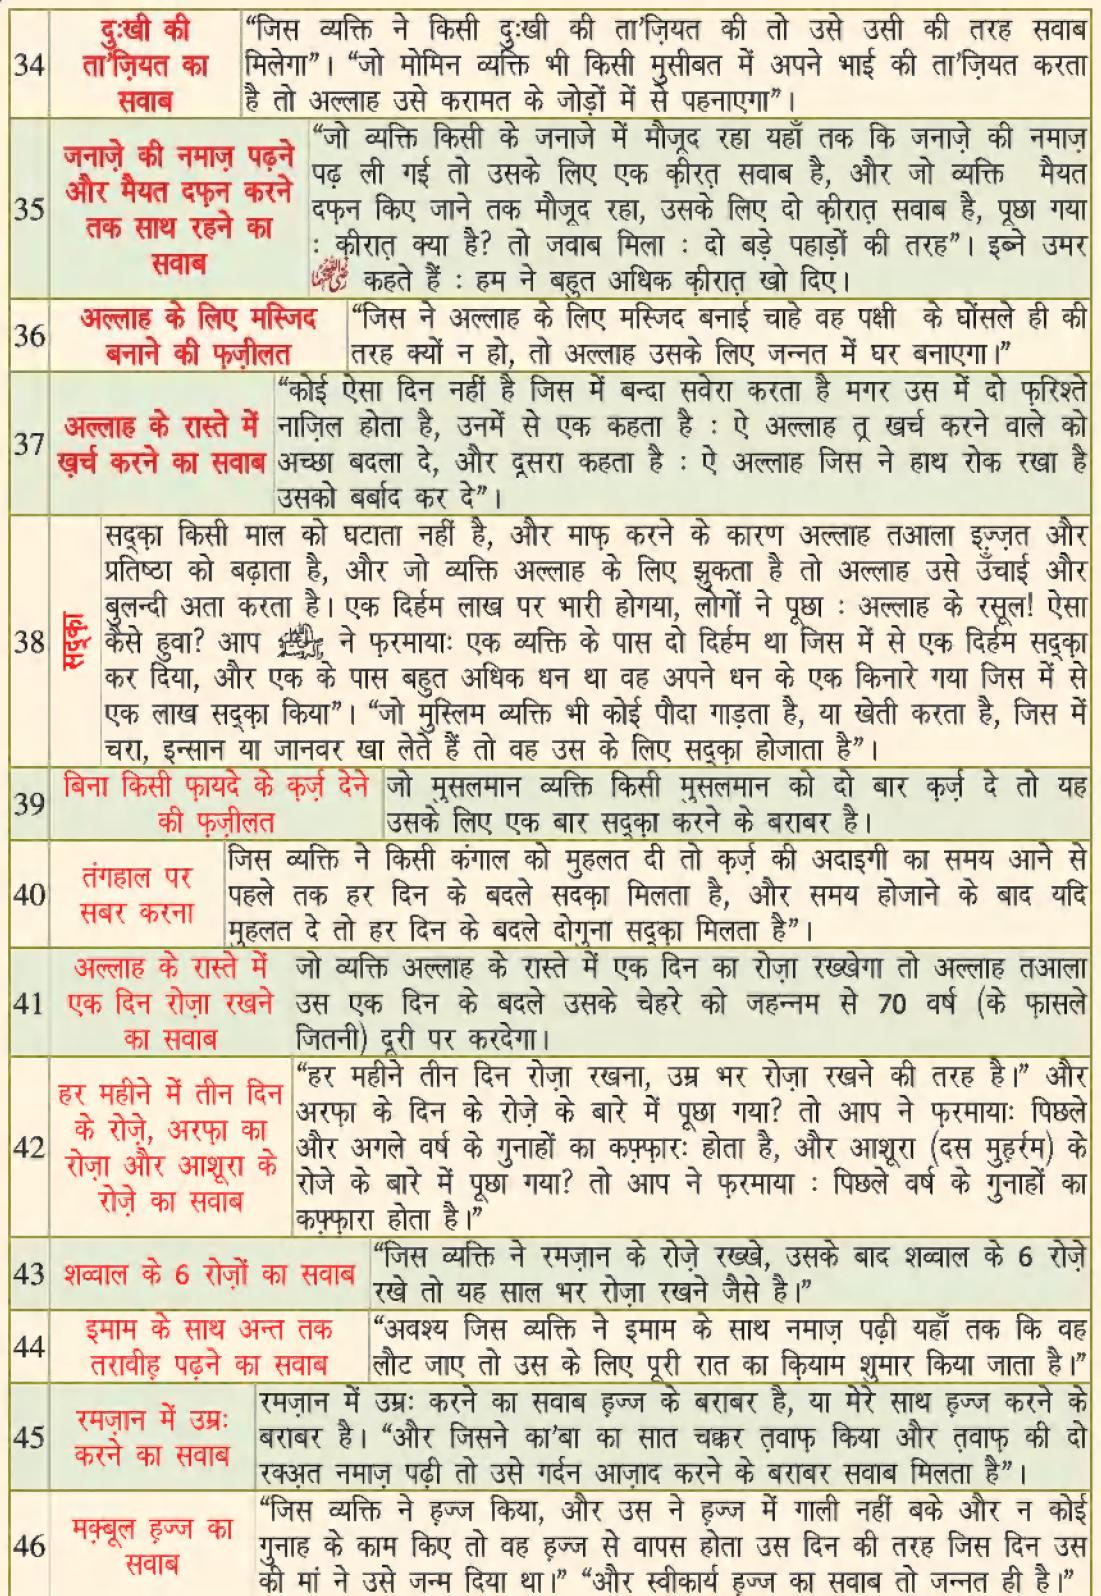 34
दुःखी की
ता'ज़ियत का
सवाब
“जिस व्यक्ति ने किसी दुःखी की ता'ज़ियत की तो उसे उसी की तरह सवाब
मिलेगा”। “जो मोमिन व्यक्ति भी किसी मुसीबत में अपने भाई की ता'ज़ियत करता
है तो अल्लाह उसे करामत के जोड़ों में से पहनाएगा”।
35
जनाज़े की नमाज़ पढ़ने
और मैयत दफ़न करने
तक साथ रहने का
सवाब
“जो व्यक्ति किसी के जनाजे में मौजूद रहा यहाँ तक कि जनाज़े की नमाज़
पढ़ ली गई तो उसके लिए एक क़ीरत़ सवाब है, और जो व्यक्ति मैयत
दफ़न किए जाने तक मौजूद रहा, उसके लिए दो क़ीरात़ सवाब है, पूछा गया
: क़ीरात़ क्या है? तो जवाब मिला : दो बड़े पहाड़ों की तरह”। इब्ने उमर
कहते हैं : हम ने बहुत अधिक क़ीरात़ खो दिए।
36
अल्लाह के लिए मस्जिद
बनाने की फ़ज़ीलत
“जिस ने अल्लाह के लिए मस्जिद बनाई चाहे वह पक्षी के घोंसले ही की
तरह क्यों न हो, तो अल्लाह उसके लिए जन्नत में घर बनाएगा।”
37
अल्लाह के रास्ते में
ख़र्च करने का सवाब
“कोई ऐसा दिन नहीं है जिस में बन्दा सवेरा करता है मगर उस में दो फ़रिश्ते
नाज़िल होता है, उनमें से एक कहता है : ऐ अल्लाह तू खर्च करने वाले को
अच्छा बदला दे, और दूसरा कहता है : ऐ अल्लाह जिस ने हाथ रोक रखा है
उसको बर्बाद कर दे”।
38
सद्क़ा
सद्क़ा किसी माल को घटाता नहीं है, और माफ़ करने के कारण अल्लाह तआला इ़ज़्ज़त और
प्रतिष्ठा को बढ़ाता है, और जो व्यक्ति अल्लाह के लिए झुकता है तो अल्लाह उसे उँचाई और
बुलन्दी अता करता है। एक दिर्हम लाख पर भारी होगया, लोगों ने पूछा : अल्लाह के रसूल! ऐसा
कैसे हुवा? आप ﷺ ने फ़रमायाः एक व्यक्ति के पास दो दिर्हम था जिस में से एक दिर्हम सद्क़ा
कर दिया, और एक के पास बहुत अधिक धन था वह अपने धन के एक किनारे गया जिस में से
एक लाख सद्क़ा किया”। “जो मुस्लिम व्यक्ति भी कोई पौदा गाड़ता है, या खेती करता है, जिस में
चरा, इन्सान या जानवर खा लेते हैं तो वह उस के लिए सद्क़ा होजाता है”।
39
बिना किसी फ़ायदे के क़र्ज़ देने
की फ़ज़ीलत
जो मुसलमान व्यक्ति किसी मुसलमान को दो बार क़र्ज़ दे तो यह
उसके लिए एक बार सद्क़ा करने के बराबर है।
40
तंगहाल पर
सबर करना
जिस व्यक्ति ने किसी कंगाल को मुहलत दी तो क़र्ज़ की अदाइगी का समय आने से
पहले तक हर दिन के बदले सदक़ा मिलता है, और समय होजाने के बाद यदि
मुहलत दे तो हर दिन के बदले दोगुना सद्क़ा मिलता है”।
41
अल्लाह के रास्ते में
एक दिन रोज़ा रखने
का सवाब
जो व्यक्ति अल्लाह के रास्ते में एक दिन का रोज़ा रख्खेगा तो अल्लाह तआला
उस एक दिन के बदले उसके चेहरे को जहन्नम से 70 वर्ष (के फ़ासले
जितनी) दूरी पर करदेगा।
42
हर महीने में तीन दिन
के रोज़े, अरफ़ा का
रोज़ा और आशूरा के
रोज़े का सवाब
“हर महीने तीन दिन रोज़ा रखना, उम्र भर रोज़ा रखने की तरह है।” और
अरफ़ा के दिन के रोज़े के बारे में पूछा गया? तो आप ने फ़रमायाः पिछले
और अगले वर्ष के गुनाहों का कफ़्फ़ारः होता है, और आशूरा (दस मुह़र्रम) के
रोजे के बारे में पूछा गया? तो आप ने फ़रमाया : पिछले वर्ष के गुनाहों का
कफ़्फ़ारा होता है।”
43
शव्वाल के 6 रोज़ों का सवाब
“जिस व्यक्ति ने रमज़ान के रोज़े रख्खे, उसके बाद शव्वाल के 6 रोज़े
रखे तो यह साल भर रोज़ा रखने जैसे है।”
44
इमाम के साथ अन्त तक
तरावीह़ पढ़ने का सवाब
“अवश्य जिस व्यक्ति ने इमाम के साथ नमाज़ पढ़ी यहाँ तक कि वह
लौट जाए तो उस के लिए पूरी रात का क़ियाम शुमार किया जाता है।”
45
रमज़ान में उम्रः
करने का सवाब
रमज़ान में उम्रः करने का सवाब ह़ज्ज के बराबर है, या मेरे साथ ह़ज्ज करने के
बराबर है। “और जिसने का'बा का सात चक्कर त़वाफ़ किया और त़वाफ़ की दो
रक्अ़त नमाज़ पढ़ी तो उसे गर्दन आज़ाद करने के बराबर सवाब मिलता है”।
46
मक़्बूल ह़ज्ज का
सवाब
“जिस व्यक्ति ने ह़ज्ज किया, और उस ने ह़ज्ज में गाली नहीं बके और न कोई
गुनाह के काम किए तो वह ह़ज्ज से वापस होता उस दिन की तरह जिस दिन उस
की मां ने उसे जन्म दिया था।” “और स्वीकार्य ह़ज्ज का सवाब तो जन्नत ही है।”